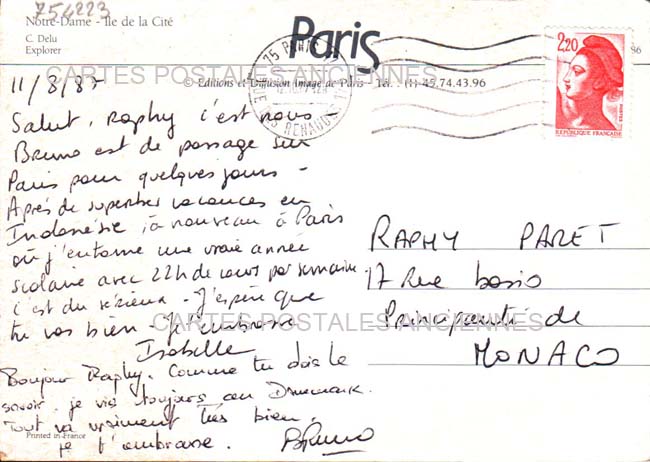 754223
Notre-Dame - Île de la Cité
C. Delu
Explorer
Paris
© Editions et Diffusion Image de Paris - Tél. : (1) 45.74.43.96
CARTES POSTALES ANCIENNES
75 PARIS
RUE DES RENAUDES
2,20
POSTES
REPUBLIQUE FRANÇAISE
11/8/87
Salut, Raphy c'est nous -
Bruno est de passage sur
Paris pour quelques jours -
Après de superbes vacances en
Indonésie, à nouveau à Paris
où j'entame une vraie année
scolaire avec 22h de cours par semaine
c'est du sérieux - J'espère que
tu vas bien - Je t'embrasse
Isabelle
Bonjour Raphy. Comme tu dois le
savoir, je vis toujours au Danemark.
Tout va vraiment très bien.
je t'embrasse. Bruno
RAPHY PARET
17 Rue bosio
Principauté de
MONACO
CARTES POSTALES ANCIENNES
Printed in France